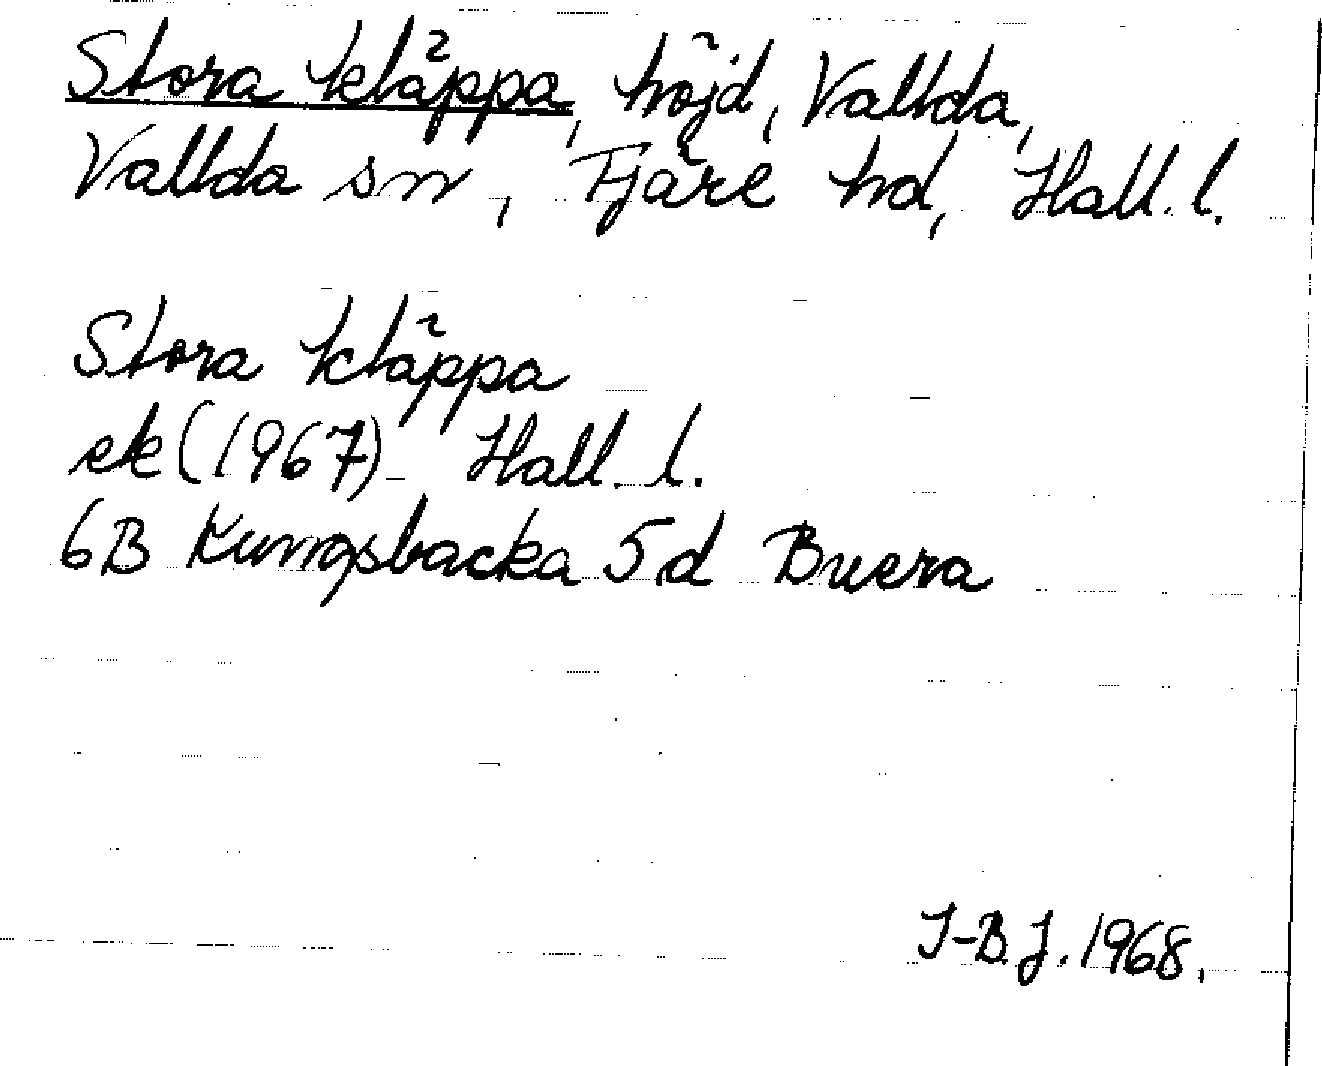 Stora kläppa, höjd, Vallda,
Vallda sn, Fjäre hd, Hall. l.
Stora kläppa
ek (1967) Hall. l.
6B Kungsbacka 5d Buera
I-B.J. 1968.